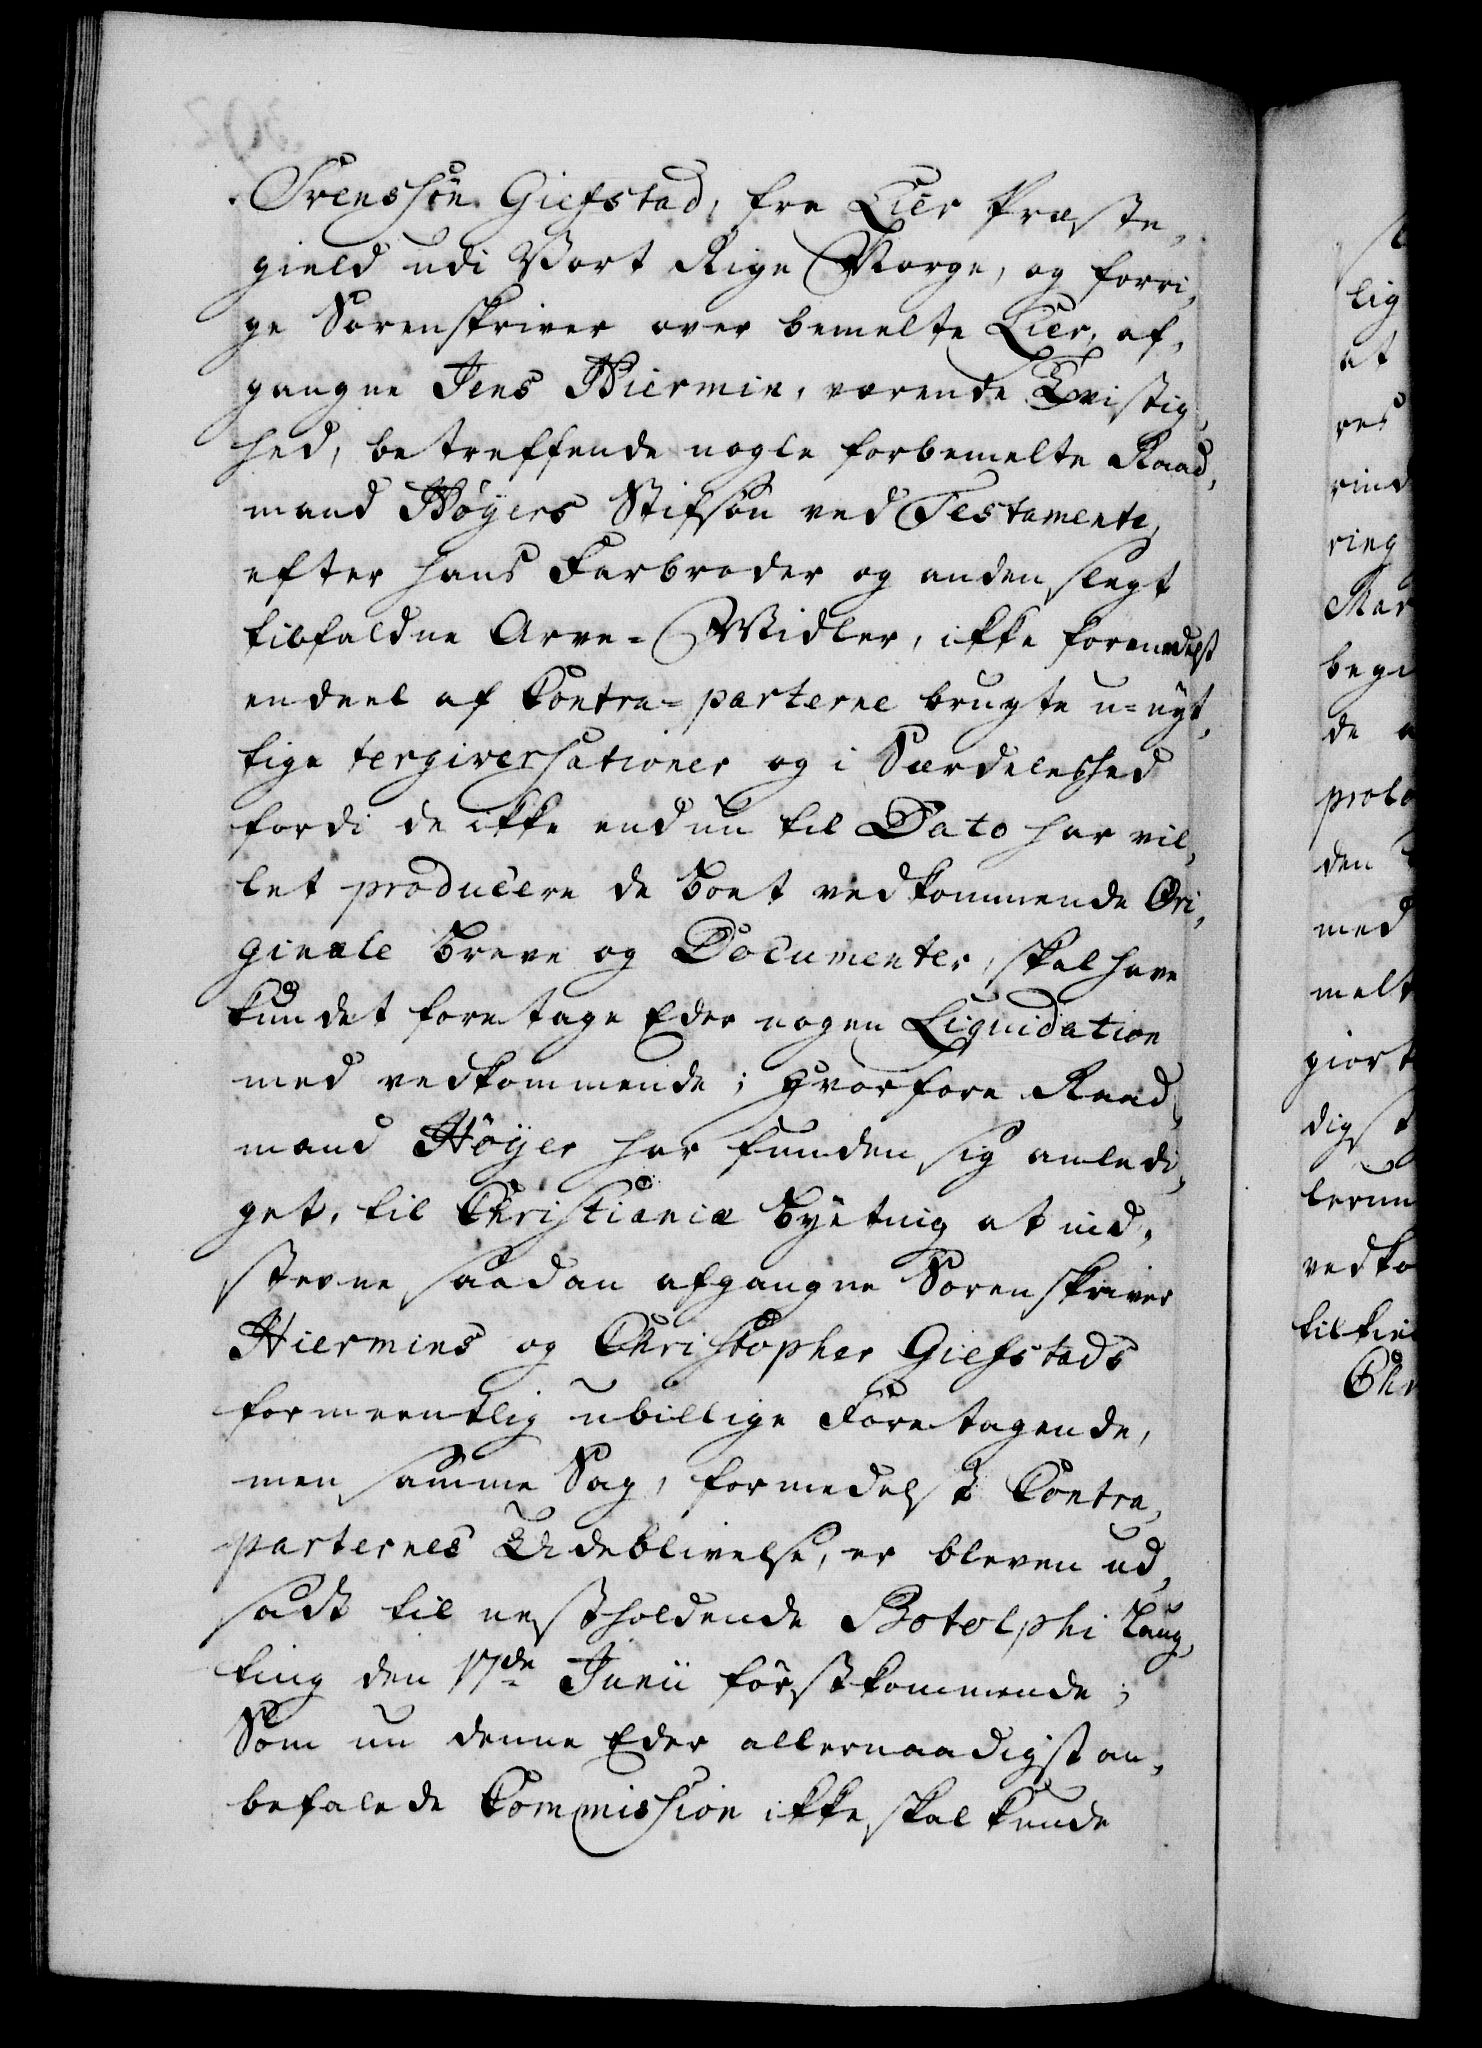 Svenssøn Giefstad, fra Lier Præste,
gield udi Vort Rige Norge, og forri,
ge Sorenskriver over bemelte Lier, af,
gangne Jens Hiermin, værende Tvistig,
hed, betreffende nogle forbemelte Raad,
mand Høyers Stifsøn ved Testamente,
efter hans Farbroder og anden slegt
tilfaldne Arve-Midler, ikke formedelst
endeel af Contra-parterne brugte u-nyt,
tige tergiversationer og i Særdeleshed
fordi de ikke endnu til Dato har vil,
let producere de Boet vedkommende Ori,
ginale Breve og Documenter, skal have
kundet foretage Eder nogen Liquidation
med vedkommende; hvorfore Raad,
mand Høyer har funden sig anledi,
get, til Christiania Byeting at ind,
stevne saadan afgangne Sorenskriver
Hiermins og Christopher Giefstads
formeentlig ubillige Foretagende,
men samme Sag, formedelst Contra,
parternes Udeblivelse, er bleven ud,
sadt til nestholdende Botolphi Laug,
ting den 17de Junii førstkommende;
Som nu denne Eder allernaadigst an,
befalede Commission ikke skal kunde
lig
at
res
rind
ring
Mar
bege
de
prolo
den
med
melt
giort
digst
lernn
vedko
tilkie
Chr